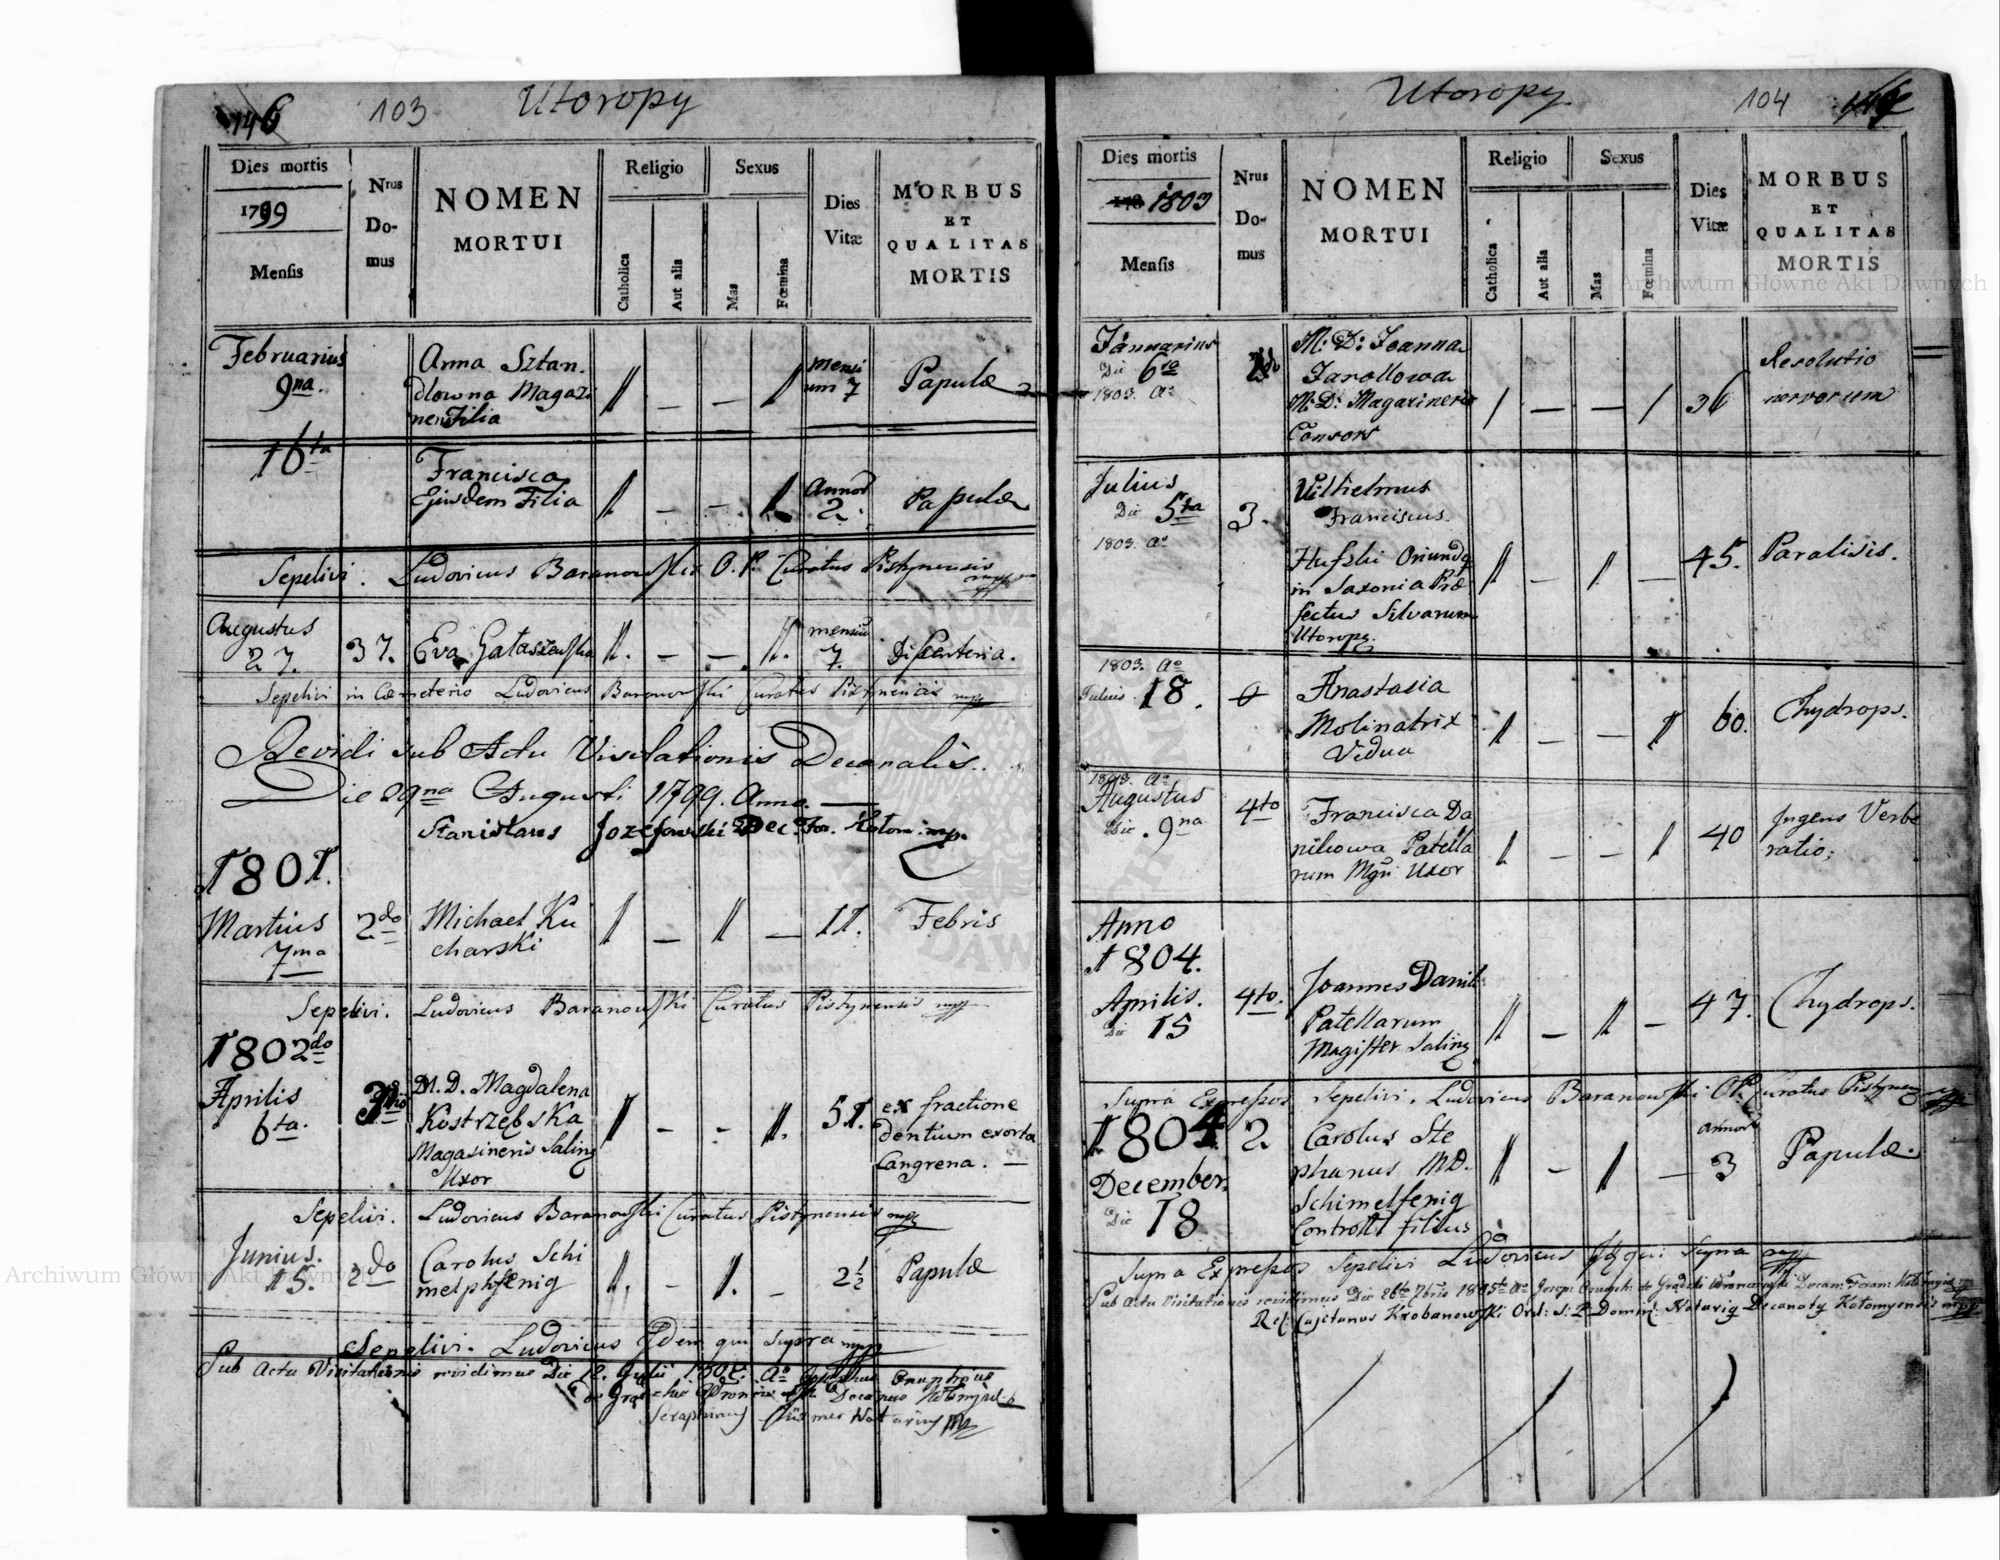 146 103 Utoropy
Dies mortis
1799
Mensis
Nrus Do-mus
NOMEN MORTUI
Religio
Catholica
Aut alia
Sexus
Mas
Fœmina
Dies Vitæ
MORBUS ET QUALITAS MORTIS
Februarius 9na.
Anna Sztan.
dlowna Magazi
neri Filia
mensi
um 7
Papulæ
16ta
Francisca
Ejusdem Filia
Annor
2.
Papulæ
Sepelivi. Ludovicus Baranowski O.P. Curatus Pistynensis mpp
Augustus
27. 37. Eva Gataszewska
mensiũ
7.
Disenteria.
Sepelivi in Cœmeterio Ludovicus Baranowski Curatus Pistynensis mpp
Revidi sub Actu Visitationis Decanalis.
Die 29na Augusti 1799. Anno.
Stanislaus Jozefowski Dec. For. Kolom: mp.
1801.
Martius 2do Michael Ku
7ma charski
11. Febris
Sepelivi. Ludovicus Baranowski Curatus Pistynensis mpp
1802do
Aprilis
6ta.
3tio
M. D. Magdalena
Kostrzebska
Magasineris Salinę
Uxor
51.
ex fractione
dentium exorta
Cangrena.
Sepelivi. Ludovicus Baranowski Curatus Pistynensis mpp
Junius. 2do Carolus Schi
15. melphfenig
2½ Papulæ
Sepelivi. Ludovicus Idem qui supra mpp
Sub Actu Visitationis revidimus Die 12. Julii
Decanus
Seraphinus Notarius mp
Utoropy 104
Dies mortis
1803
Mensis
Nrus Do-mus
NOMEN MORTUI
Religio
Catholica
Aut alia
Sexus
Mas
Fœmina
Dies Vitæ
MORBUS ET QUALITAS MORTIS
Archiwum Główne Akt Dawnych
Januarius
Die 6ta
1803. Ao
M: D: Joanna
Jarollowa
M: D: Magazineris
Consors
36
Resolutio
nervorum
Julius
Die 5ta
1803. Ao
3.
Vilhelmus
Franciscus
Hufski Oriundę
in Saxonia Præ
fectus Silvarum
Utoropę.
45. Paralisis.
1803. Ao
Julius. 18. 6
Anastasia
Molinatrix
Vidua
60. Chydrops.
1803. Ao
Augustus
Die . 9na
4to
Francisca Da
nilowa Patella
rum Mgri Uxor
40
Ingens Verbe
ratio;
Anno
1804.
Aprilis.
Die 15
4to.
Joannes Danil
Patellarum
Magister Salinę
47. Chydrops.
Supra Expressos Sepelivi. Ludovicus Baranowski OP. Curatus Pistynen mpp
1804.
December.
Die 18
2
Carolus Ste
phanus MD.
Schimelfenig
Controll filius
annor
3
Papulæ.
Supra Expressos Sepelivi Ludovicus Idē qui Supra mpp
Sub Actu Visitationis revidimus Die 26ta 7bris 1805to Ao
Cajetanus Krobanowski Ord: S: P. Domni: Notarię Decanatę Kołomyensis mpp
Archiwum Główne Akt Dawnych